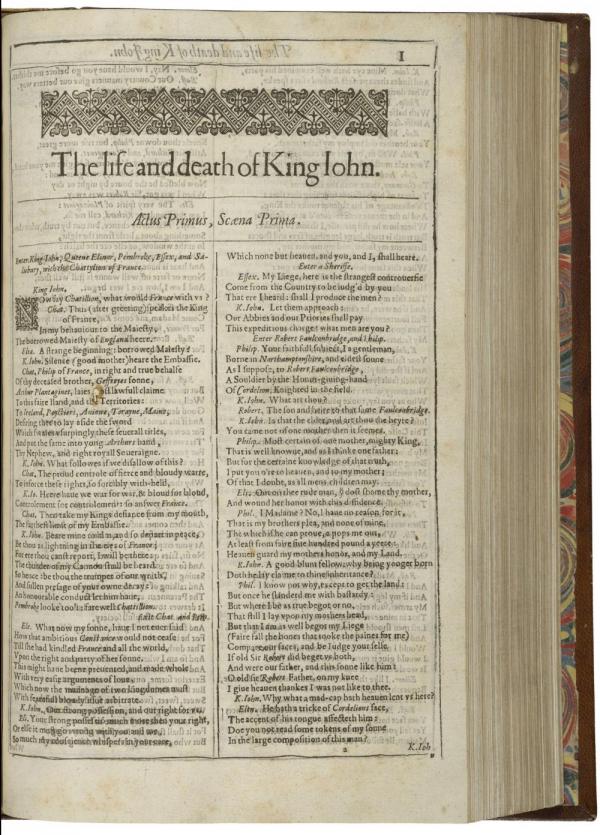 1
The life and death of King Iohn.
Actus Primus, Scæna Prima.
Enter King Iohn, Queene Elinor, Pembroke, Essex, and Sa-
lisbury, with the Chattylion of France.
King Iohn.
NOw say Chatillion, what would France with vs?
Chat. Thus (after greeting) speakes the King
of France,
In my behauiour to the Maiesty,
The borrowed Maiesty of England heere.
Elea. A strange beginning: borrowed Maiesty?
K. Iohn. Silence (good mother) heare the Embassie.
Chat. Philip of France, in right and true behalfe
Of thy deceased brother, Geffreyes sonne,
Arthur Plantaginet, laies lawfull claime
To this faire Iland, and the Territories:
To Ireland, Poyctiers, Aniowe, Torayne, Maine,
Desiring thee to lay aside the sword
Which swaies vsurpingly these seuerall titles,
And put the same into yong Arthurs hand,
Thy Nephew, and right royall Soueraigne.
K. Iohn. What followes if we disallow of this?
Chat. The proud controle of fierce and bloudy warre,
To inforce these rights, so forcibly with-held,
K. Io. Heere haue we war for war, & bloud for bloud,
Controlement for controlement: so answer France.
Chat. Then take my Kings defiance from my mouth,
The farthest limit of my Embassie.
K. Iohn. Beare mine to him, and so depart in peace,
Be thou as lightning in the eies of France;
For ere thou canst report, I will be there:
The thunder of my Cannon shall be heard.
So hence: be thou the trumpet of our wrath,
And sullen presage of your owne decay:
An honourable conduct let him haue,
Pembroke looke too't: farewell Chattillion.
Exit Chat. and Pem.
Ele. What now my sonne, haue I not euer said
How that ambitious Constance would not cease
Till she had kindled France and all the world,
Vpon the right and party of her sonne.
This might haue beene preuented, and made whole
With very easie arguments of loue,
Which now the mannage of two kingdomes must
With fearefull bloudy issue arbitrate.
K. Iohn. Our strong possession, and our right for vs.
Eli. Your strong possessiō much more then your right,
Or else it must go wrong with you and me,
So much my conscience whispers in your eare,
Which none but heauen, and you, and I, shall heare.
Enter a Sheriffe.
Essex. My Liege, here is the strangest controuersie
Come from the Country to be iudg'd by you
That ere I heard: shall I produce the men?
K. Iohn. Let them approach:
Our Abbies and our Priories shall pay
This expeditious charge: what men are you?
Enter Robert Faulconbridge, and Philip.
Philip. Your faithfull subiect, I a gentleman,
Borne in Northamptonshire, and eldest sonne
As I suppose, to Robert Faulconbridge,
A Souldier by the Honor-giuing-hand
Of Cordelion, Knighted in the field.
K. Iohn. What art thou?
Robert. The son and heire to that same Faulconbridge.
K. Iohn. Is that the elder, and art thou the heyre?
You came not of one mother then it seemes.
Philip. Most certain of one mother, mighty King,
That is well knowne, and as I thinke one father:
But for the certaine knowledge of that truth,
I put you o're to heauen, and to my mother;
Of that I doubt, as all mens children may.
Eli. Out on thee rude man, ÿ dost shame thy mother,
And wound her honor with this diffidence.
Phil. I Madame? No, I haue no reason for it,
That is my brothers plea, and none of mine,
The which if he can proue, a pops me out,
At least from faire fiue hundred pound a yeere:
Heauen guard my mothers honor, and my Land.
K. Iohn. A good blunt fellow: why being yonger born
Doth he lay claime to thine inheritance?
Phil. I know not why, except to get the land:
But once he slanderd me with bastardy:
But where I be as true begot or no,
That still I lay vpon my mothers head,
But that I am as well begot my Liege
(Faire fall the bones that tooke the paines for me)
Compare our faces, and be Iudge your selfe
If old Sir Robert did beget vs both,
And were our father, and this sonne like him:
O old sir Robert Father, on my knee
I giue heauen thankes I was not like to thee.
K. Iohn. Why what a mad-cap hath heauen lent vs here?
Elen. He hath a tricke of Cordelions face,
The accent of his tongue affecteth him:
Doe you not read some tokens of my sonne
In the large composition of this man?
a
K. Ioh